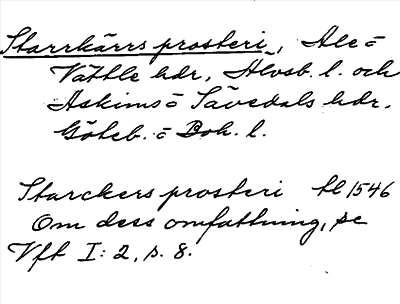 Starrkärrs prosteri, Ale=
Vättle hdr, Älvsb. l. och
Askims= Sävedals hdr,
Göteb. = Boh. l.
Starckers prosteri tl 1546
Om dess omfattning, se
Vft I: 2, s. 8.